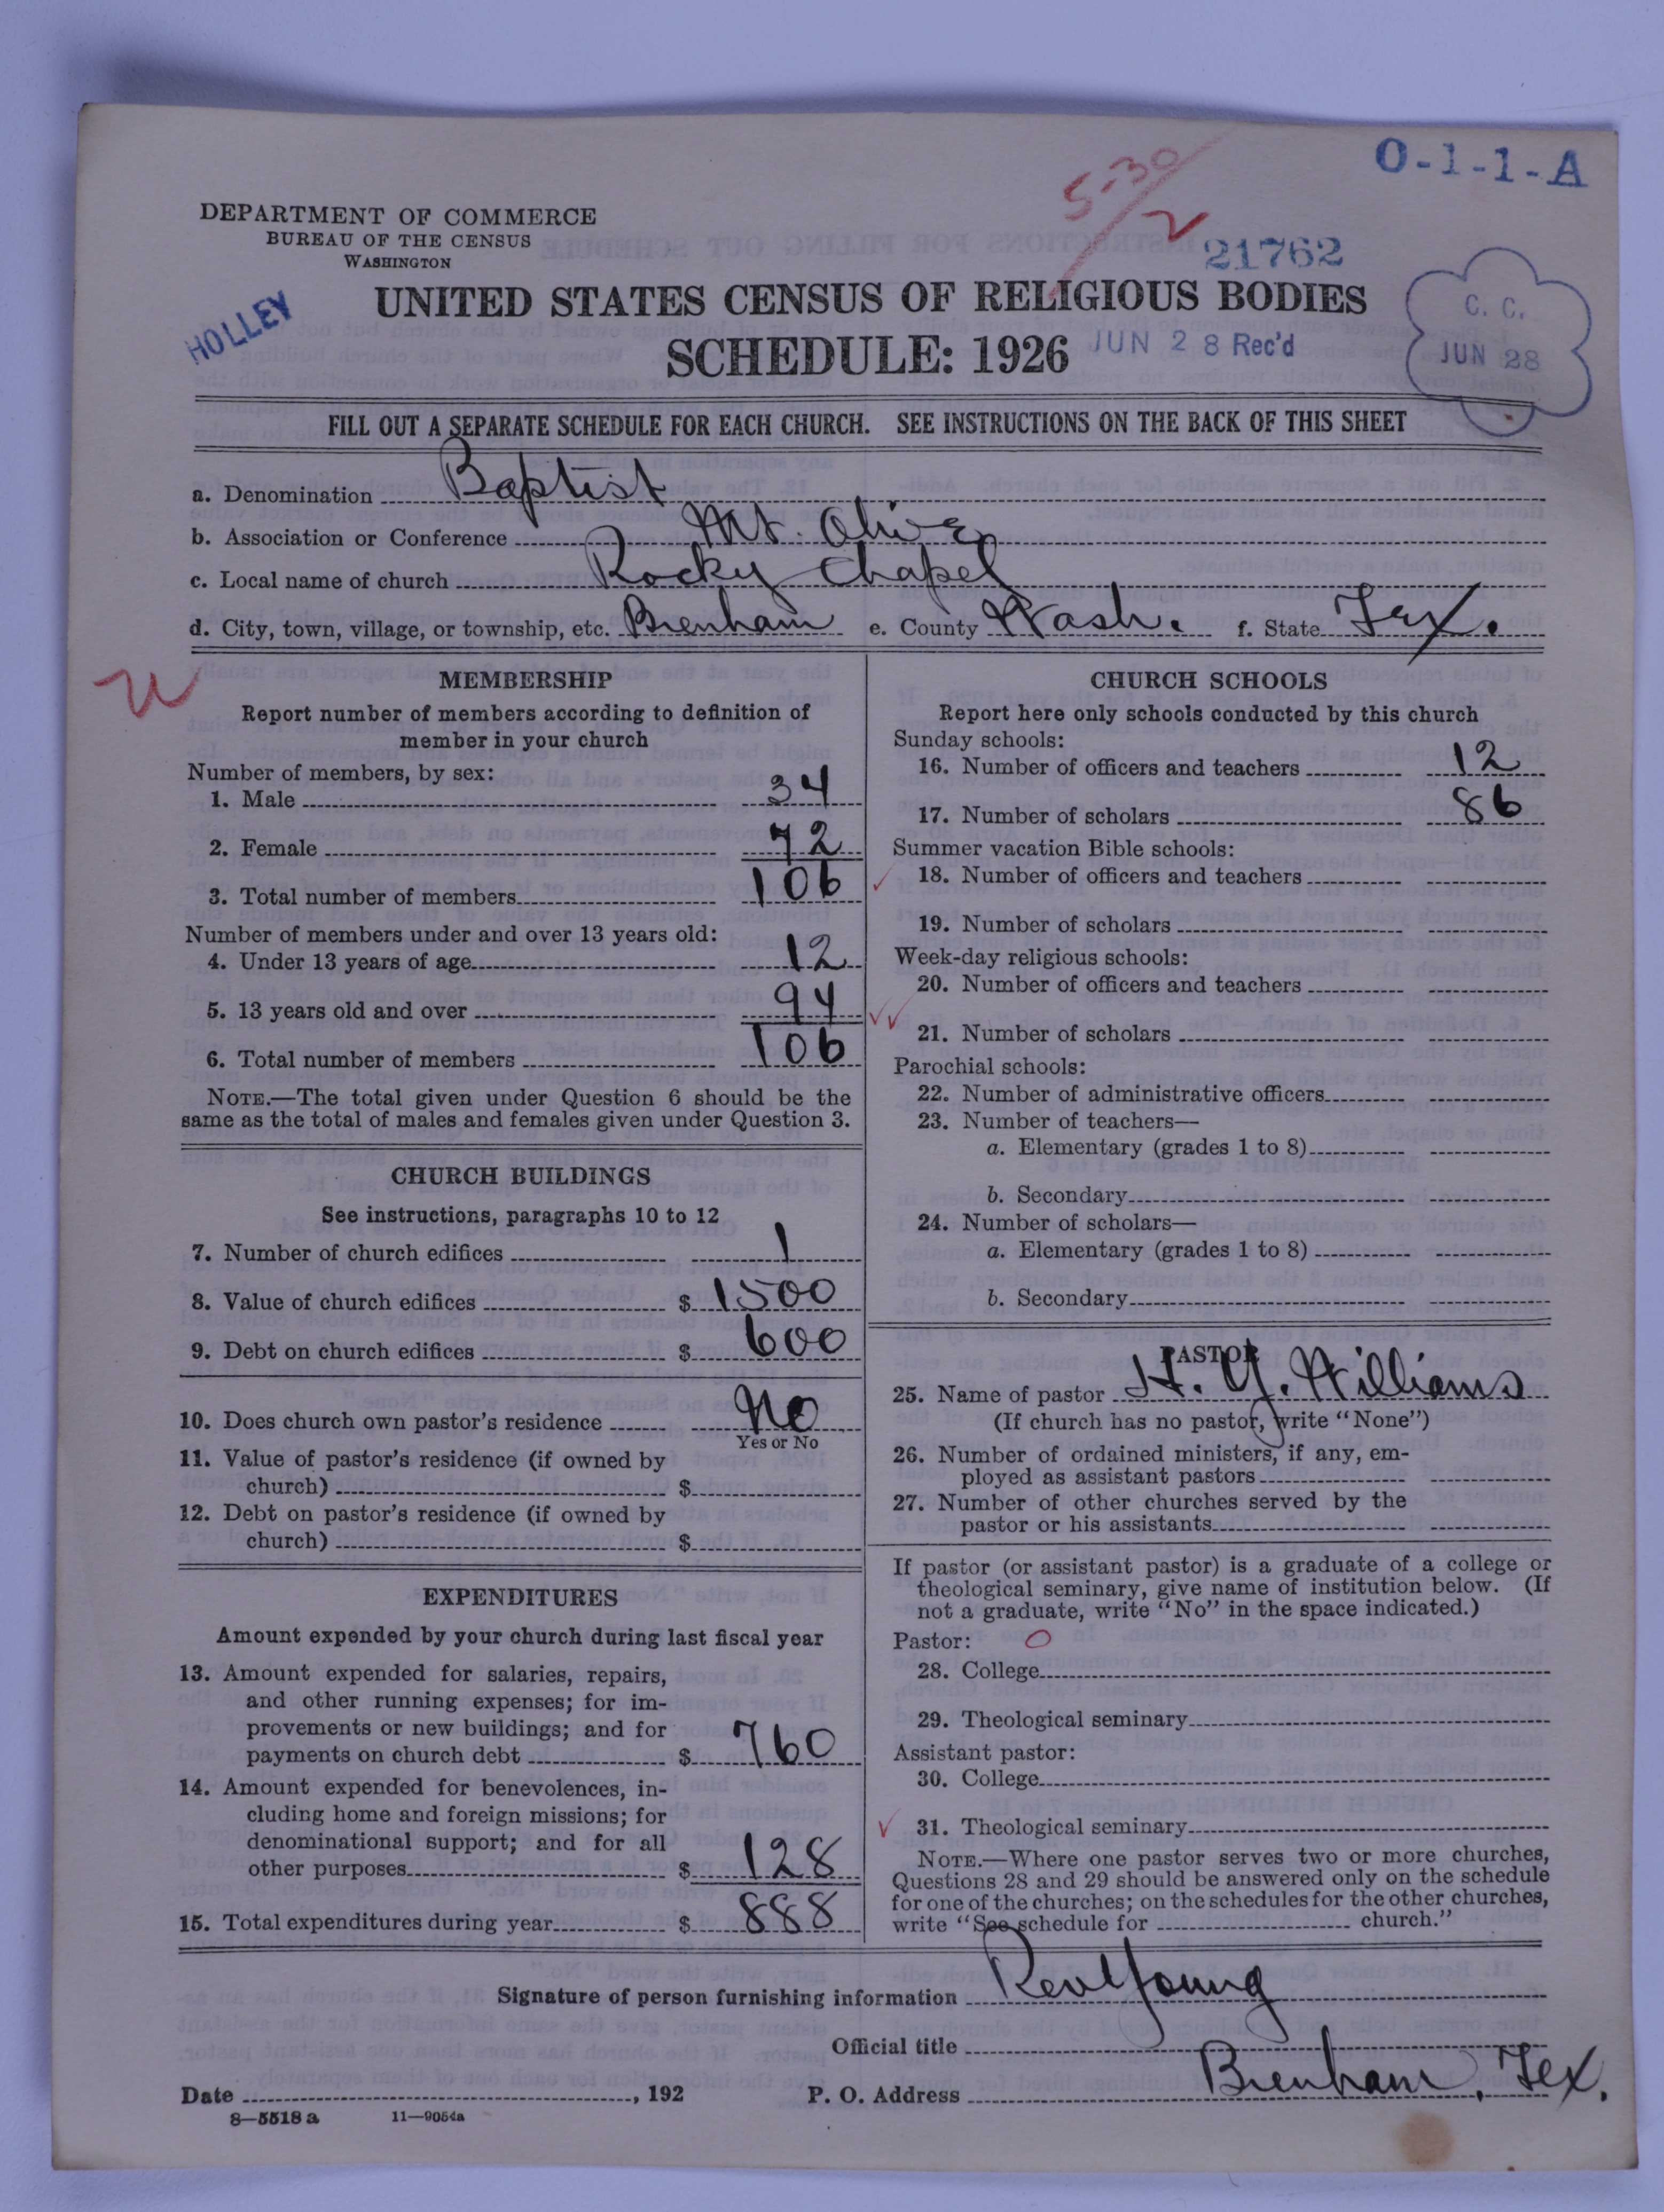 O-1-1-A
5-30
2
DEPARTMENT OF COMMERCE
BUREAU OF THE CENSUS
WASHINGTON
21762
HOLLEY
UNITED STATES CENSUS OF RELIGIOUS BODIES
SCHEDULE: 1926
JUN 28 Rec'd
C. C.
JUN 28
FILL OUT A SEPARATE SCHEDULE FOR EACH CHURCH. SEE INSTRUCTIONS ON THE BACK OF THIS SHEET
a. Denomination Baptist
b. Association or Conference Mt. Olive
c. Local name of church Rocky Chapel
d. City, town, village, or township, etc. Brenham e. County Wash. f. State Tex.
MEMBERSHIP
Report number of members according to definition of
member in your church
Number of members, by sex:
1. Male 34
2. Female 72
3. Total number of members 106
Number of members under and over 13 years old:
4. Under 13 years of age 12
5. 13 years old and over 94
6. Total number of members 106
NOTE.—The total given under Question 6 should be the
same as the total of males and females given under Question 3.
CHURCH BUILDINGS
See instructions, paragraphs 10 to 12
7. Number of church edifices 1
8. Value of church edifices $ 1500
9. Debt on church edifices $ 600
10. Does church own pastor's residence No
Yes or No
11. Value of pastor's residence (if owned by
church) $
12. Debt on pastor's residence (if owned by
church) $
EXPENDITURES
Amount expended by your church during last fiscal year
13. Amount expended for salaries, repairs,
and other running expenses; for im-
provements or new buildings; and for
payments on church debt $ 760
14. Amount expended for benevolences, in-
cluding home and foreign missions; for
denominational support; and for all
other purposes $ 128
15. Total expenditures during year $ 888
CHURCH SCHOOLS
Report here only schools conducted by this church
Sunday schools:
16. Number of officers and teachers 12
17. Number of scholars 86
Summer vacation Bible schools:
18. Number of officers and teachers
19. Number of scholars
Week-day religious schools:
20. Number of officers and teachers
21. Number of scholars
Parochial schools:
22. Number of administrative officers
23. Number of teachers—
a. Elementary (grades 1 to 8)
b. Secondary
24. Number of scholars—
a. Elementary (grades 1 to 8)
b. Secondary
PASTOR
25. Name of pastor H. Y. Williams
(If church has no pastor, write "None")
26. Number of ordained ministers, if any, em-
ployed as assistant pastors
27. Number of other churches served by the
pastor or his assistants
If pastor (or assistant pastor) is a graduate of a college or
theological seminary, give name of institution below. (If
not a graduate, write "No" in the space indicated.)
Pastor: O
28. College
29. Theological seminary
Assistant pastor:
30. College
31. Theological seminary
NOTE.—Where one pastor serves two or more churches,
Questions 28 and 29 should be answered only on the schedule
for one of the churches; on the schedules for the other churches,
write "See schedule for church."
Signature of person furnishing information Rev Young
Official title
Date , 192 P. O. Address Brenham, Tex.
8—5518 a 11—9054a